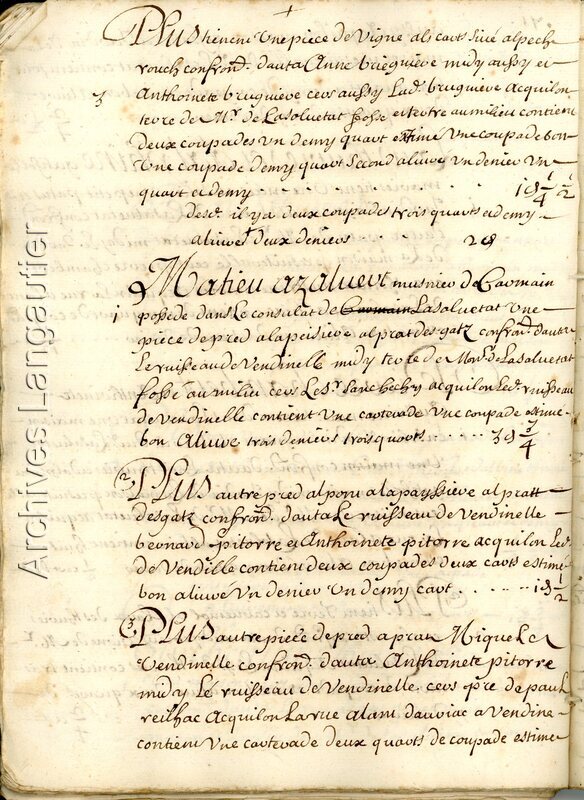 Plus tienent Une piece de Vigne als carts sive al pech
rouch confron.d d'auta Anne brugniere midy aussy et
3 Anthoinete brugniere cers aussy Lad. brugniere Acquilon
terre de M.r de Lasaluetat fosse et tertre au milieu contien
deux coupades Un demy quart extime Une coupade bon
Une coupade demy quart Second alivre Un denier Un
quart et demy 1 d 1/4 1/2
desd. il y a deux coupades trois quarts et demy
aliurés deux deniers 2 d
Matieu azaluert musnier de Carmain
1 possede dans Le consulat de Carmain Lasaluetat Une
piece de pred a la peisiere al prat des gatz confron.d d'auta
Le ruisseau de Vendinelle midy terre de Mon.r de Lasaluetat
fosse au milieu cers Le S.r sanchely acquilon Led. ruisseau
de Vendinelle contient Une carterade Une coupade estimé
bon Aliure trois deniers trois quarts 3 d 3/4
2 Plus autre pred al pont a la payssiere al pratt
des gatz confron.d d'auta Le ruisseau de Vendinelle
bernard pitorre et Anthoinete pitorre acquilon Led.
de Vendille contient deux coupades deux carts estimé
bon aliure Un denier Un demy cart 1 d 1/2
3 Plus autre piece de pred a prat Miquel et
Vendinelle confron.d d'auta Anthoinete pitorre
midy Le ruisseau de Vendinelle cers pre de paul
reilhac Acquilon La rue alant d'auriac a Vendine
contient Une carterade deux quarts de coupade estimé
Archives Langautier